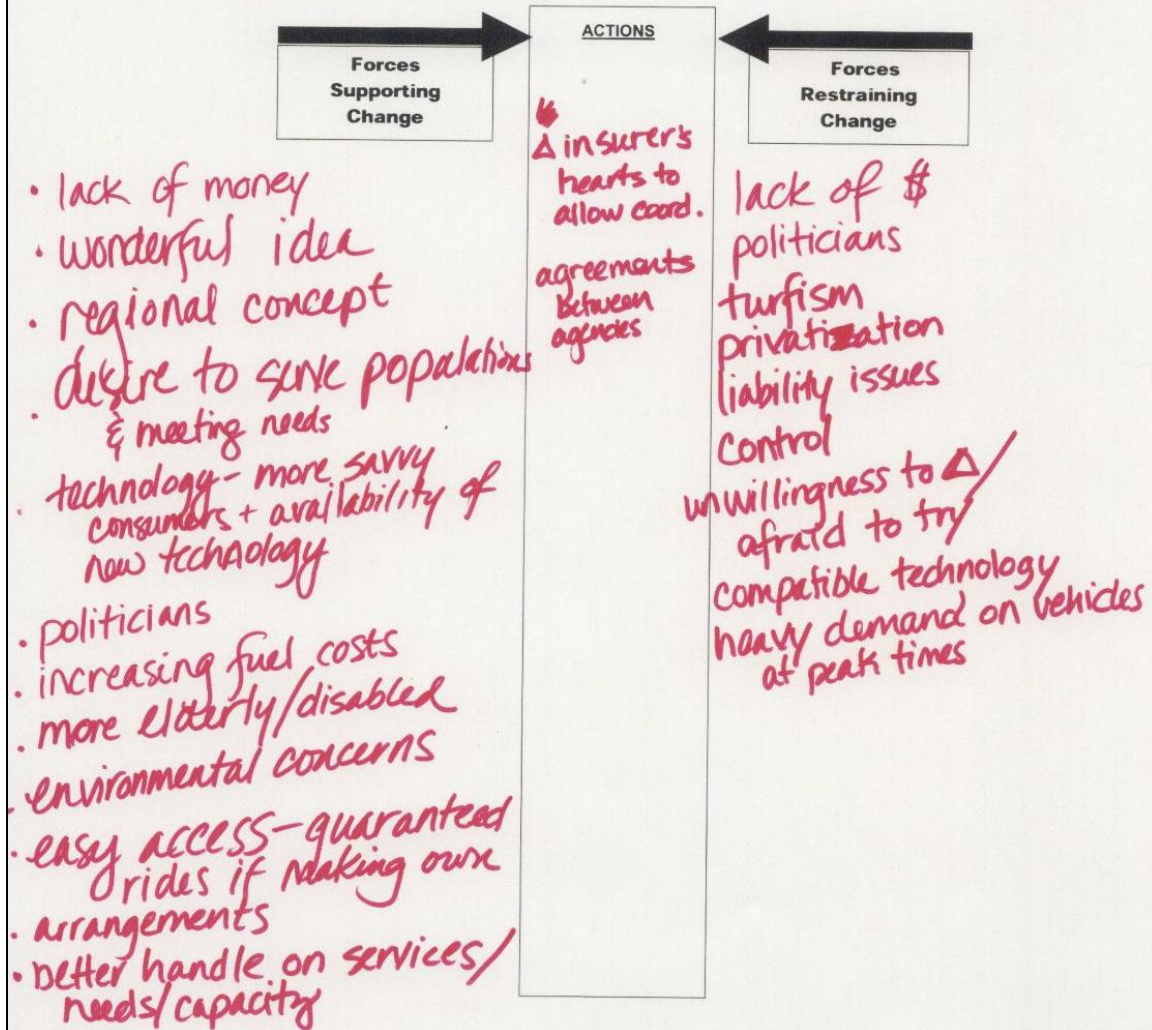 Forces
Supporting
Change
• lack of money
• wonderful idea
• regional concept
• desire to serve populations
& meeting needs
• technology - more savvy
consumers + availability of
new technology
• politicians
• increasing fuel costs
• more elderly/disabled
• environmental concerns
• easy access - guaranteed
rides if making own
• arrangements
• better handle on services/
needs/capacity
ACTIONS
Δ insurer's
hearts to
allow coord.
agreements
between
agencies
Forces
Restraining
Change
lack of $
politicians
turfism
privatization
liability issues
control
unwillingness to Δ/
afraid to try
compatible technology
heavy demand on vehicles
at peak times